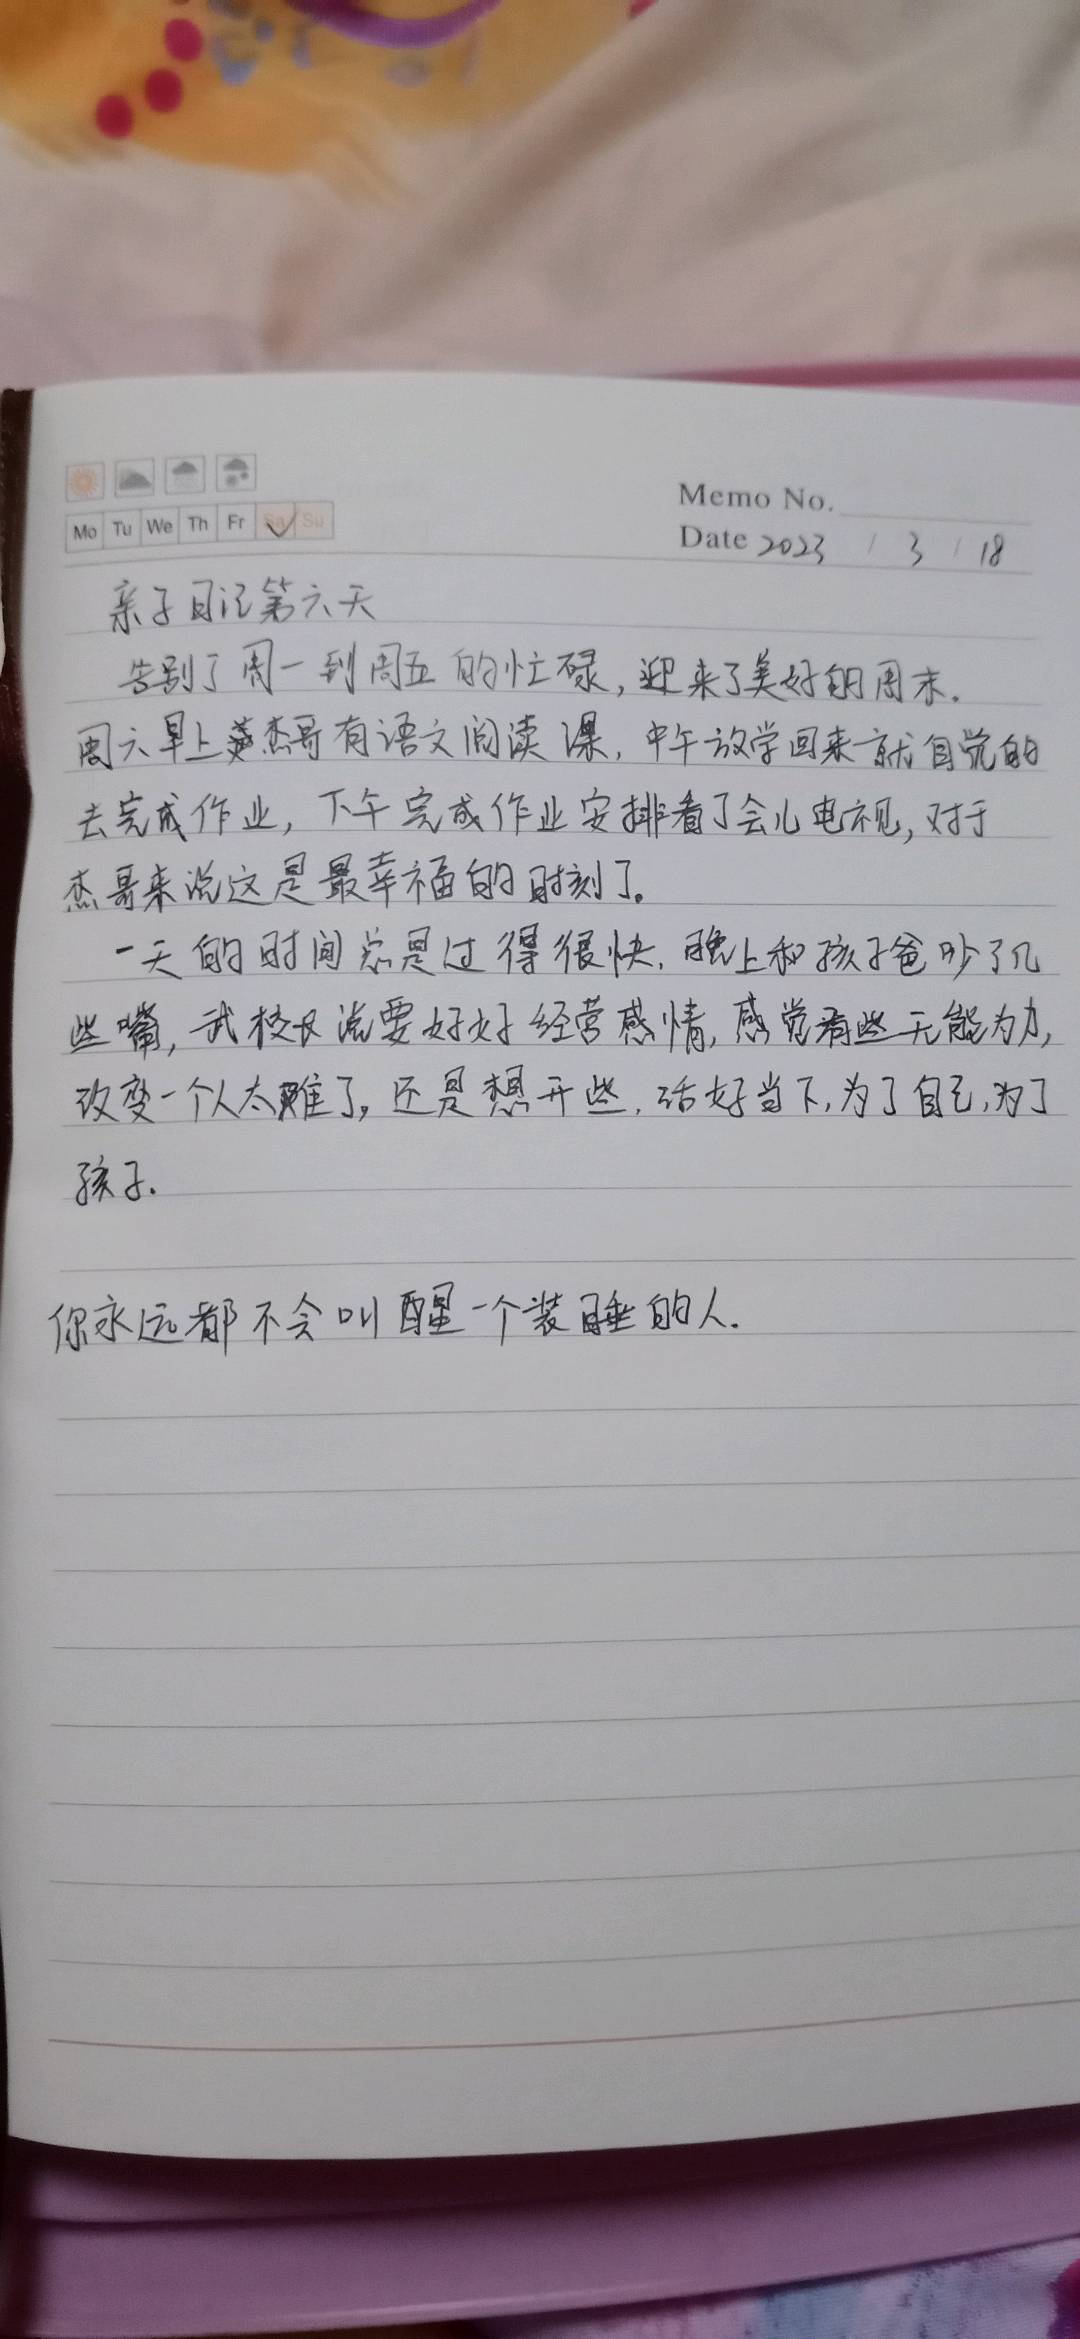 Mo Tu We Th Fr Sa Su
Memo No.
Date 2023 / 3 / 18
亲子日记第六天
告别了周一到周五的忙碌,迎来了美好的周末.
周六早上杰哥有语文阅读课,中午放学回来就自觉的
去完成作业,下午完成作业安排看了会儿电视,对于
杰哥来说这是最幸福的时刻了。
一天的时间总是过得很快.晚上和孩子爸吵了几
些嘴,武校长说要好好经营感情,感觉有些无能为力,
改变一个人太难了,还是想开些.活好当下,为了自己,为了
孩子.
你永远都不会叫醒一个装睡的人.